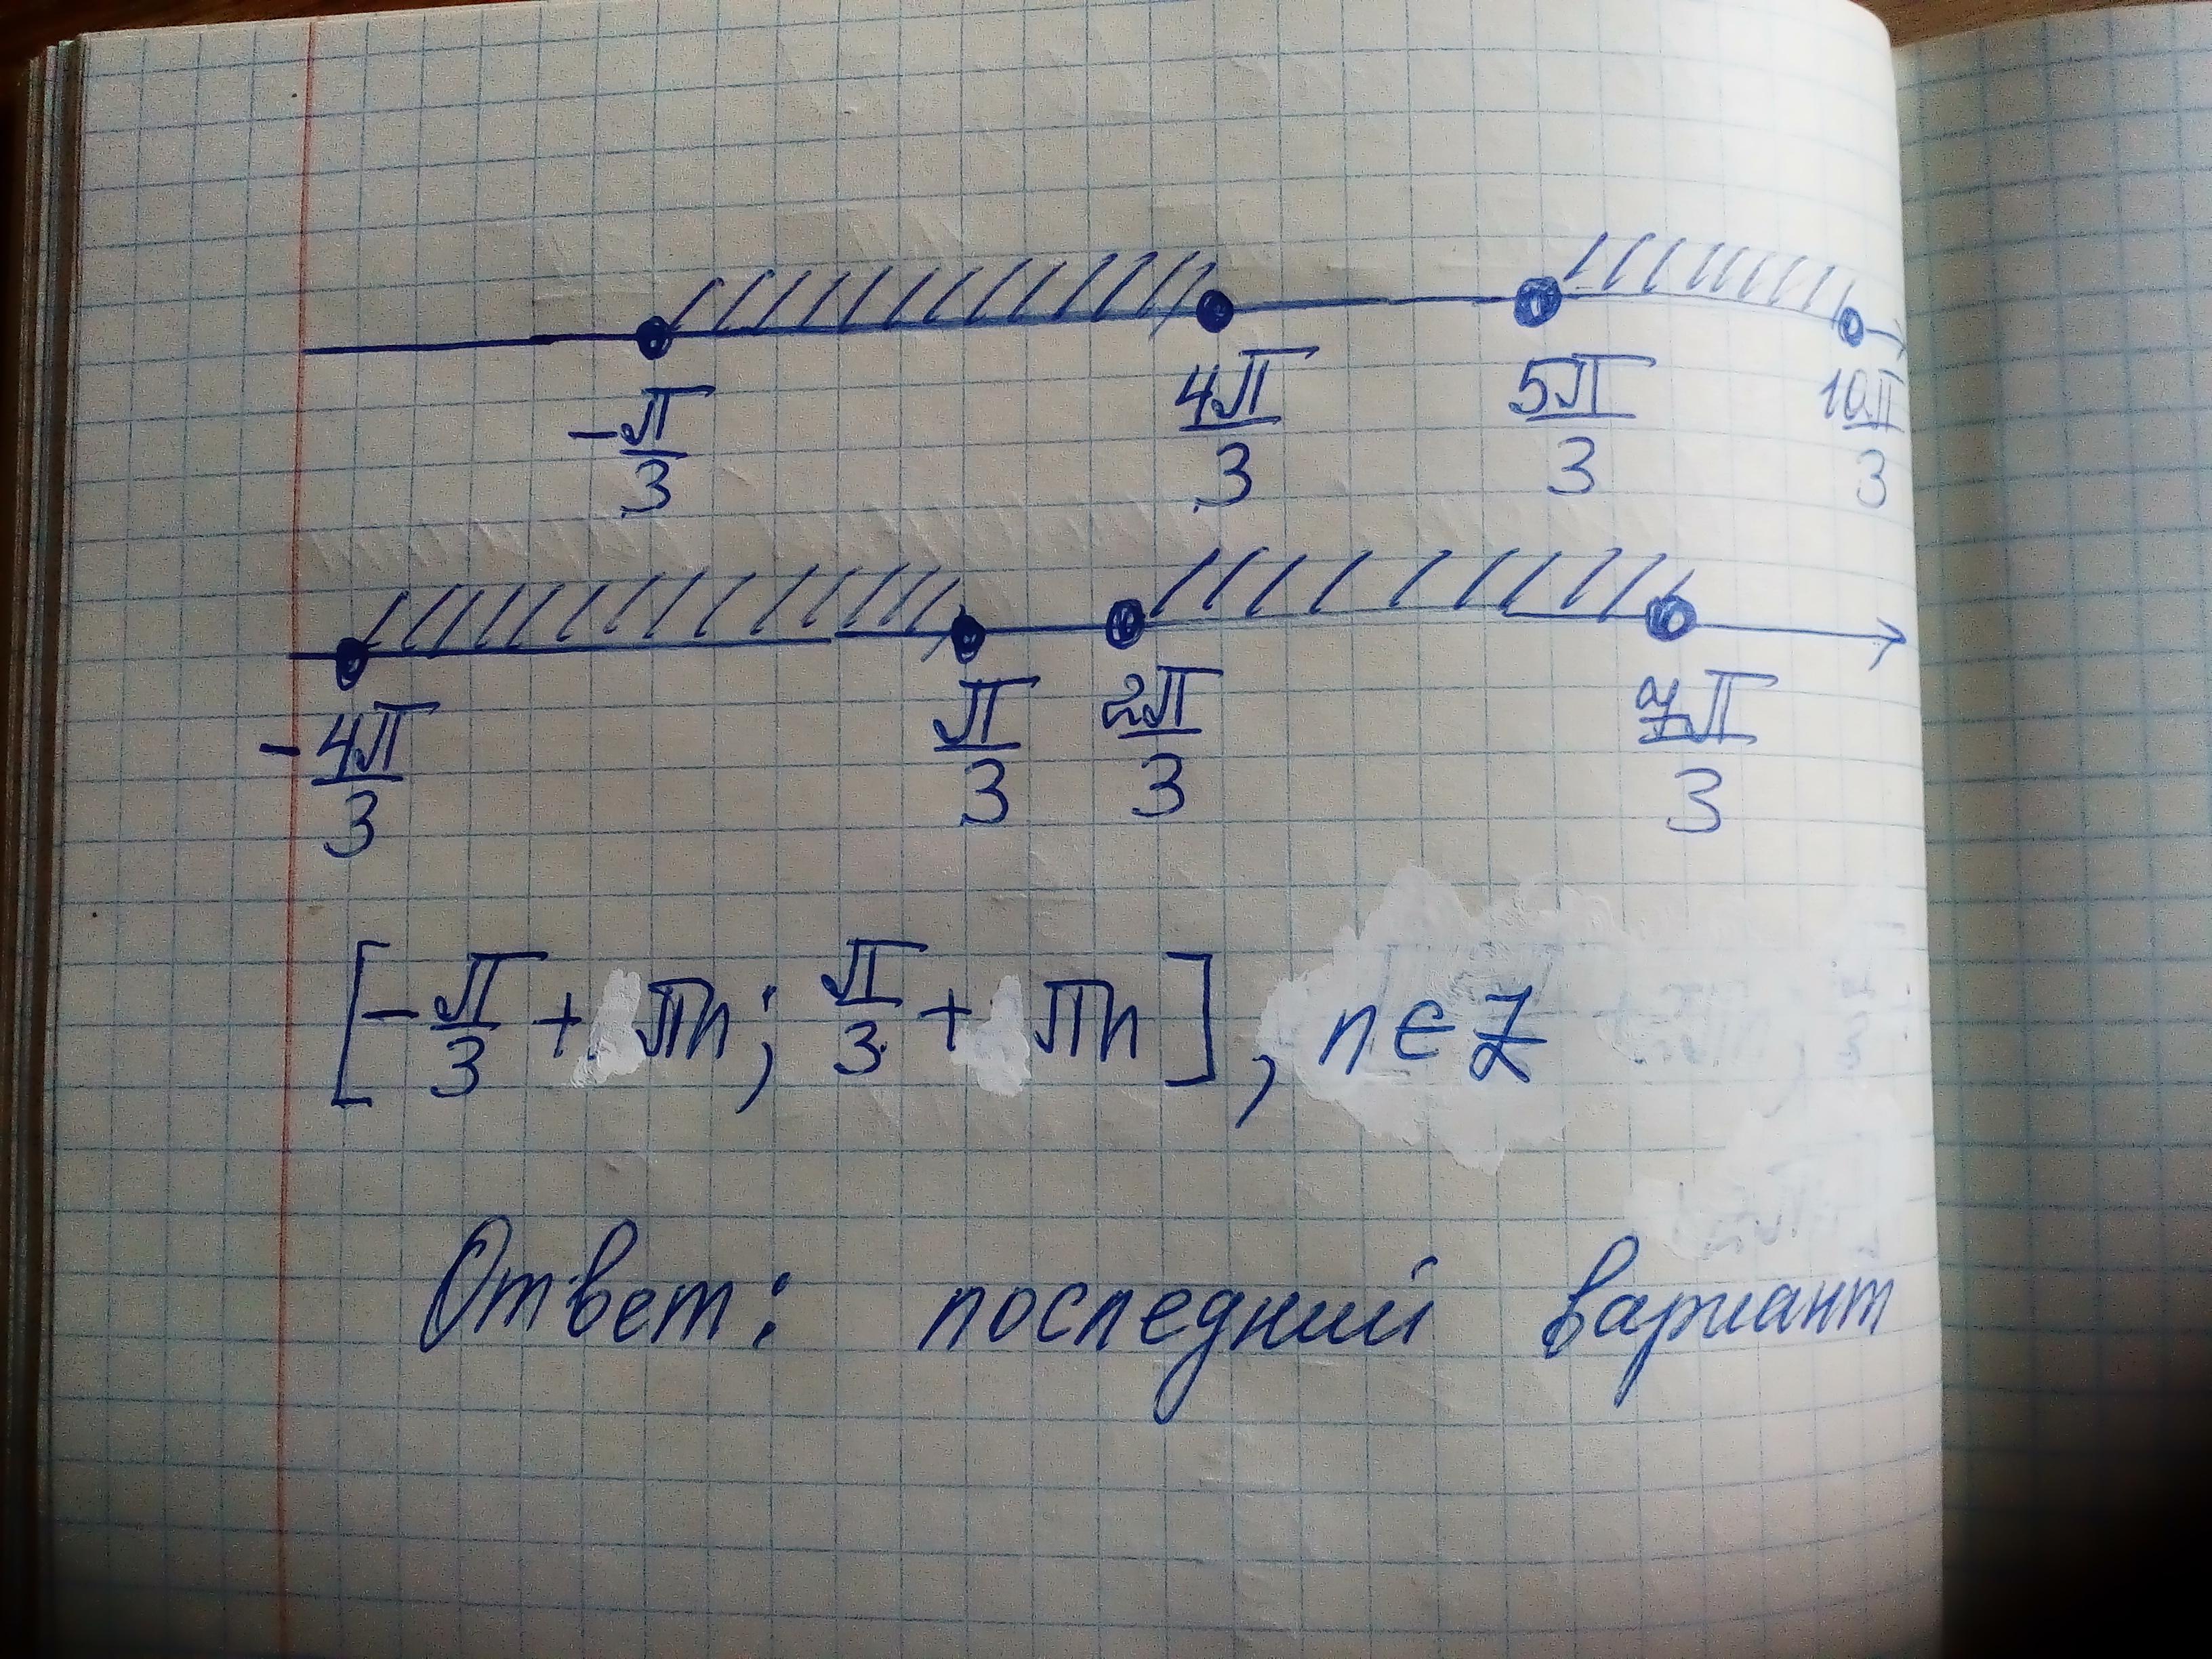 -π/3 4π/3 5π/3 10π/3
-4π/3 π/3 2π/3 7π/3
[-π/3 + πn; π/3 + πn], n∈Z
Ответ: последний вариант